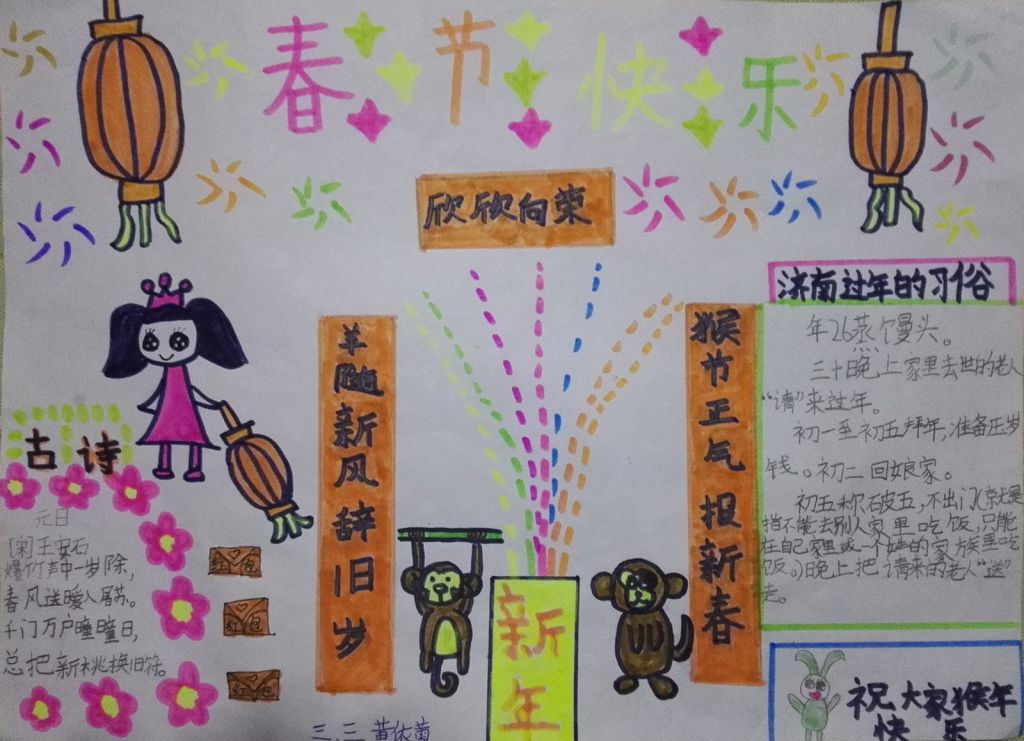 春节快乐
欣欣向荣
羊随新风辞旧岁
猴节正气报新春
新年
古诗
元日
[宋]王安石
爆竹声中一岁除,
春风送暖入屠苏。
千门万户曈曈日,
总把新桃换旧符。
红包
红包
红包
济南过年的习俗
年26蒸馒头。
三十晚上家里去世的老人
“请”来过年。
初一至初五拜年,准备压岁
钱。初二回娘家。
初五称破五,不出门(就是
指不能去别人家里吃饭,只能
在自己家里或一个姓的家族里吃
饭。)晚上把请来的老人“送”
走。
祝大家猴年
快乐
三、三 黄依